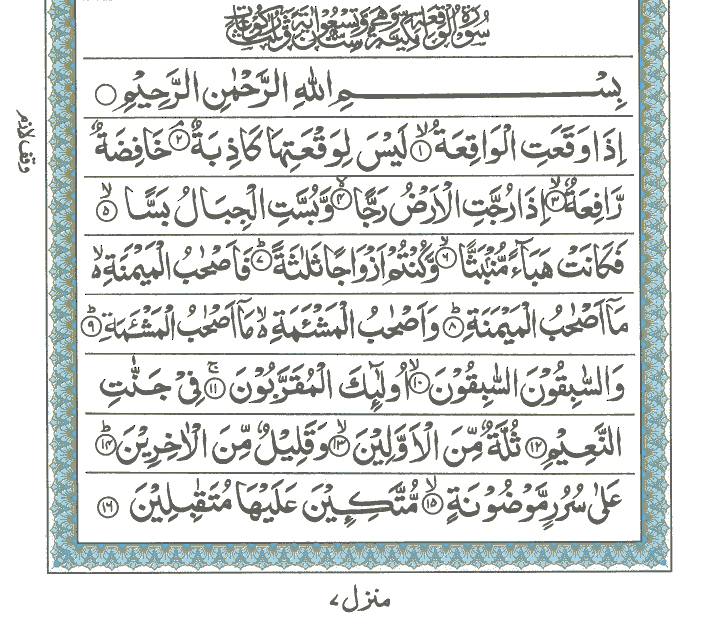 سُوْرَةُ الْوَاقِعَةِ مَكِّيَّةٌ وَّهِيَ سِتٌّ وَّتِسْعُوْنَ اٰيَةً وَّثَلٰثُ رُكُوْعَاتٍ
بِسْمِ اللّٰهِ الرَّحْمٰنِ الرَّحِيْمِ
اِذَا وَقَعَتِ الْوَاقِعَةُ ۙ‏﴿۱﴾ لَيْسَ لِوَقْعَتِهَا كَاذِبَةٌ ۘ‏﴿۲﴾ خَافِضَةٌ
وقف لازم
رَّافِعَةٌ ۙ‏﴿۳﴾ اِذَا رُجَّتِ الْاَرْضُ رَجًّا ۙ‏﴿۴﴾ وَّبُسَّتِ الْجِبَالُ بَسًّا ۙ‏﴿۵﴾
فَكَانَتْ هَبَآءً مُّنْۢبَثًّا ۙ‏﴿۶﴾ وَّكُنْتُمْ اَزْوَاجًا ثَلٰثَةً ؕ‏﴿۷﴾ فَاَصْحٰبُ الْمَيْمَنَةِ ۙ۬
مَاۤ اَصْحٰبُ الْمَيْمَنَةِ ؕ‏﴿۸﴾ وَاَصْحٰبُ الْمَشْـَٔمَةِ ۙ۬ مَاۤ اَصْحٰبُ الْمَشْـَٔمَةِ ؕ‏﴿۹﴾
وَالسّٰبِقُوْنَ السّٰبِقُوْنَ ۙ‏﴿۱۰﴾ اُولٰٓئِكَ الْمُقَرَّبُوْنَ ۚ‏﴿۱۱﴾ فِيْ جَنّٰتِ
النَّعِيْمِ ‏﴿۱۲﴾ ثُلَّةٌ مِّنَ الْاَوَّلِيْنَ ۙ‏﴿۱۳﴾ وَقَلِيْلٌ مِّنَ الْاٰخِرِيْنَ ؕ‏﴿۱۴﴾
عَلٰى سُرُرٍ مَّوْضُوْنَةٍ ۙ‏﴿۱۵﴾ مُّتَّكِـِٕيْنَ عَلَيْهَا مُتَقٰبِلِيْنَ ‏﴿۱۶﴾
منزل ۷